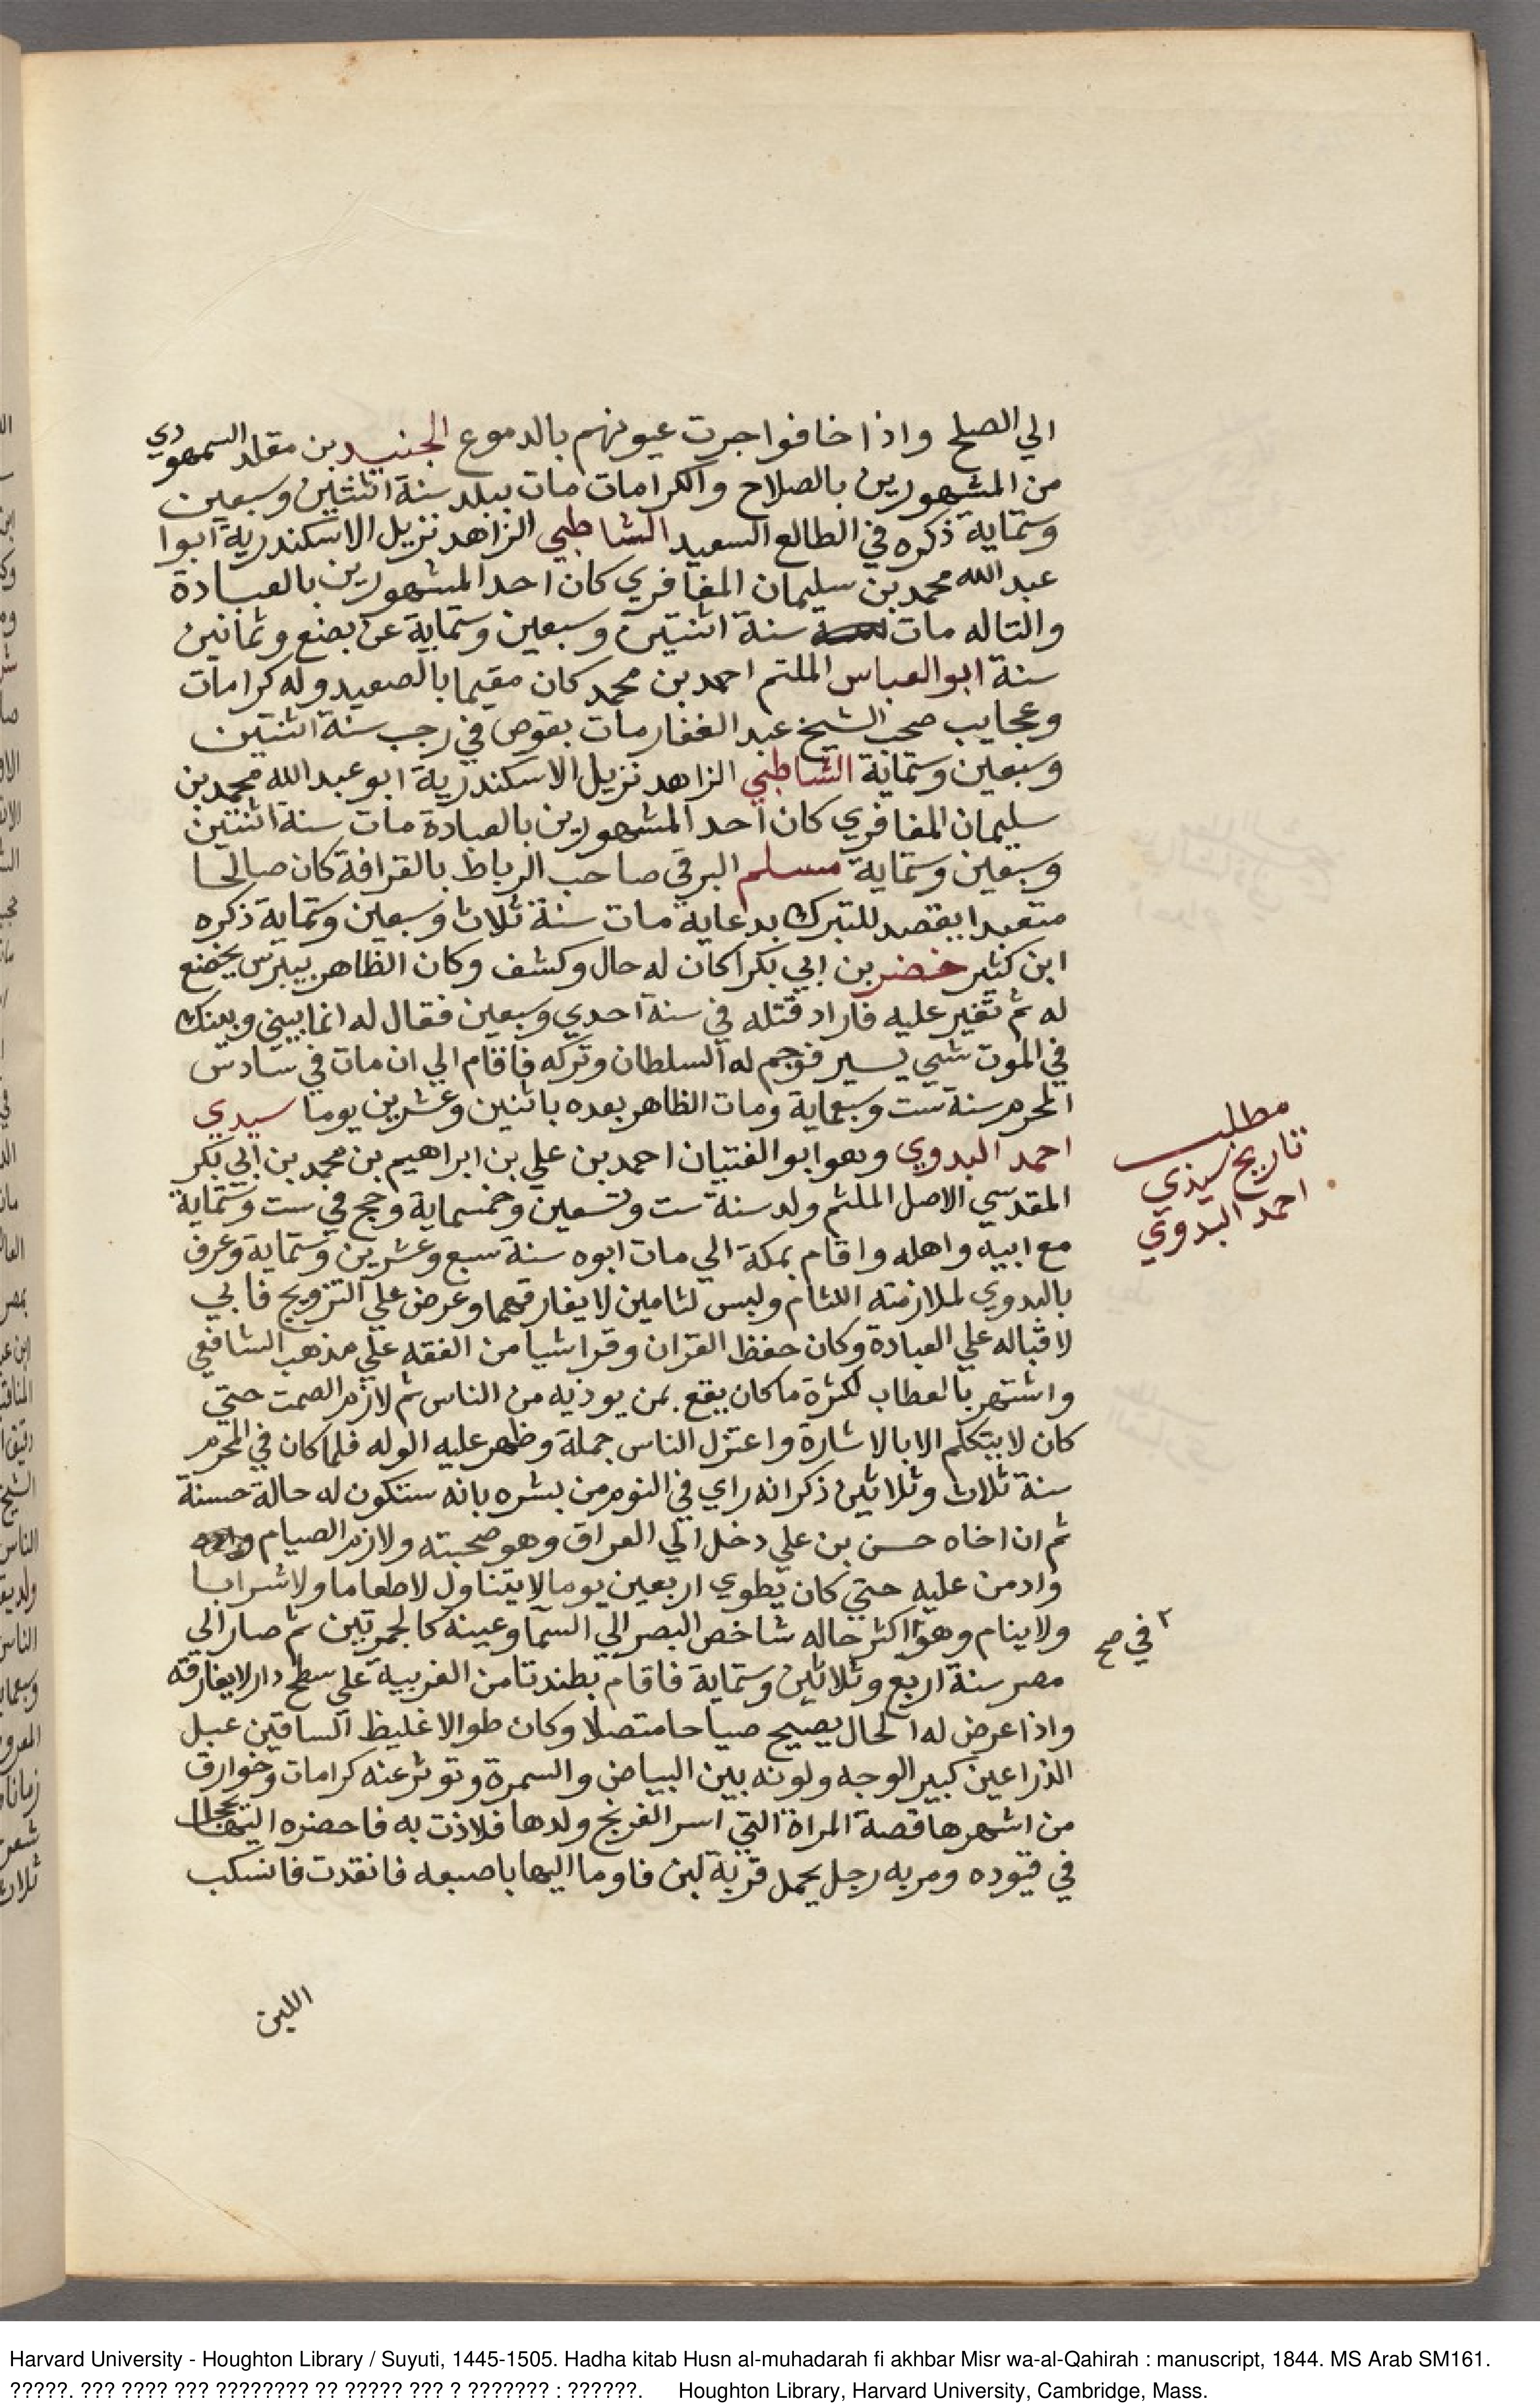 الي الصلح واذا خافوا جرت عيونهم بالدموع الجنيد بن مقلد السمهودي
من المشهورين بالصلاح والكرامات مات ببلد سنة اثنتين وسبعين
وستماية ذكره في الطالع السعيد الشاطبي الزاهد نزيل الاسكندرية ابوا
عبد الله محمد بن سليمان المغافري كان احد المشهورين بالعبادة
والتاله مات سنة اثنتين وسبعين وستماية عن بضع وثمانين
سنة ابو العباس الملثم احمد بن محمد كان مقيما بالصعيد وله كرامات
وعجايب صحب الشيخ عبد الغفار مات بقوص في رجب سنة اثنتين
وسبعين وستماية الشاطبي الزاهد نزيل الاسكندرية ابو عبد الله محمد بن
سليمان المغافري كان احد المشهورين بالعبادة مات سنة اثنتين
وسبعين وستماية مسلم البرقي صاحب الرباط بالقرافة كان صالحا
متعبدا يقصد للتبرك بدعايه مات سنة ثلاث وسبعين وستماية ذكره
ابن كثير خضر بن ابي بكر اكان له حال وكشف وكان الظاهر بيبرس يخضع
له ثم تغير عليه فاراد قتله في سنة احدي وسبعين فقال له انما بيني وبينك
في الموت شي يسير فوجم له السلطان وتركه فاقام الي ان مات في سادس
المحرم سنة ست وسبعماية ومات الظاهر بعده باثنين وعشرين يوما سيدي
احمد البدوي وهو ابو الفتيان احمد بن علي بن ابراهيم بن محمد بن ابي بكر
المقدسي الاصل الملثم ولد سنة ست وتسعين وخمسماية وحج في ست وستماية
مع ابيه واهله واقام بمكة الي مات ابوه سنة سبع وعشرين وستماية وعرف
بالبدوي لملازمته اللثام ولبس لثامين لا يفارقهما وعرض علي التزويج فابي
لاقباله علي العبادة وكان حفظ القران وقرا شيا من الفقه علي مذهب الشافعي
واشتهر بالعطاب لكثرة ما كان يقع بمن يوذيه من الناس ثم لازم الصمت حتي
كان لا يتكلم الا بالاشارة واعتزل الناس جملة وظهر عليه الوله فلما كان في المحرم
سنة ثلاث وثلاثين ذكر انه راي في النوم من بشره بانه ستكون له حالة حسنة
ثم ان اخاه حسن بن علي دخل الي العراق وهو صحبته ولازم الصيام
وادمن عليه حتي كان يطوي اربعين يوما لا يتناول لا طعاما ولا شرابا
ولا ينام وهو اكثر حاله شاخص البصر الي السما وعينه كالجمرتين ثم صار الي
مصر سنة اربع وثلاثين وستماية فاقام بطندتا من الغربية علي سطح دار لا يفارقه
واذا عرض له الحال يصيح صياحا متصلا وكان طوالا غليظ الساقين عبل
الذراعين كبير الوجه ولونه بين البياض والسمرة وتوثر عنه كرامات وخوارق
من اشهرها قصة المراة التي اسر الفرنج ولدها فلاذت به فاحضره اليها
في قيوده ومر به رجل يحمل قربة لبن فاوما اليها باصبعه فانقدت فانسكب
اللبن
مطلب
تاريخ سيدي
احمد البدوي
في صح
Harvard University - Houghton Library / Suyuti, 1445-1505. Hadha kitab Husn al-muhadarah fi akhbar Misr wa-al-Qahirah : manuscript, 1844. MS Arab SM161.
?????. ??? ???? ??? ???????? ?? ????? ??? ? ??????? : ??????. Houghton Library, Harvard University, Cambridge, Mass.